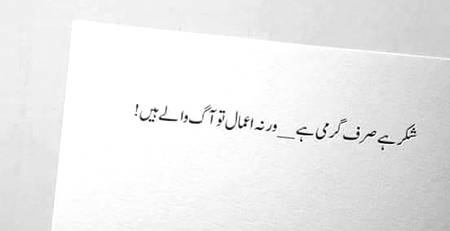 شکر ہے صرف گرمی ہے__ورنہ اعمال تو آگ والے ہیں!